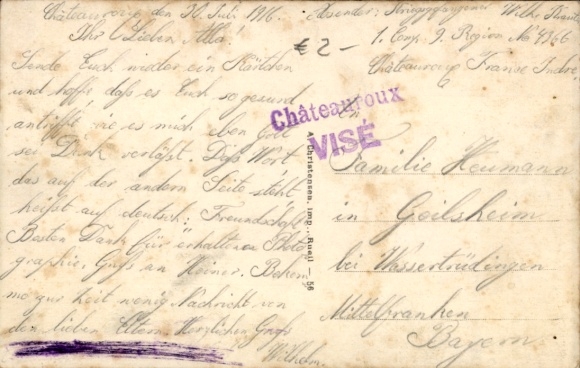 Châteauroux den 30. Juli 1916.
Ihr Lieben Alla!
Sende Euch wieder ein Kärtchen
und hoffe daß es Euch so gesund
antrifft wie es mich eben Gott
sei Dank verläßt. Dieß Wort
das auf der andern Seite steht
heißt auf deutsch: Freundschaft
Besten Dank für erhaltenen Photo
graphie. Gruß an Heiner. Bekom
me zur Zeit wenig Nachricht von
den lieben Eltern. Herzlichen Gruß
Wilhelm.
€ 2-
Absender: Kriegsgefangener Wilh.
1. Cmp. 9. Region No 4366
Châteauroux France Indre
Châteauroux
VISÉ
An
Familie Heumann
in Geilsheim
bei Wassertrüdingen
Mittelfranken
Bayern.
A. Christensen, imp., Rueil — 56